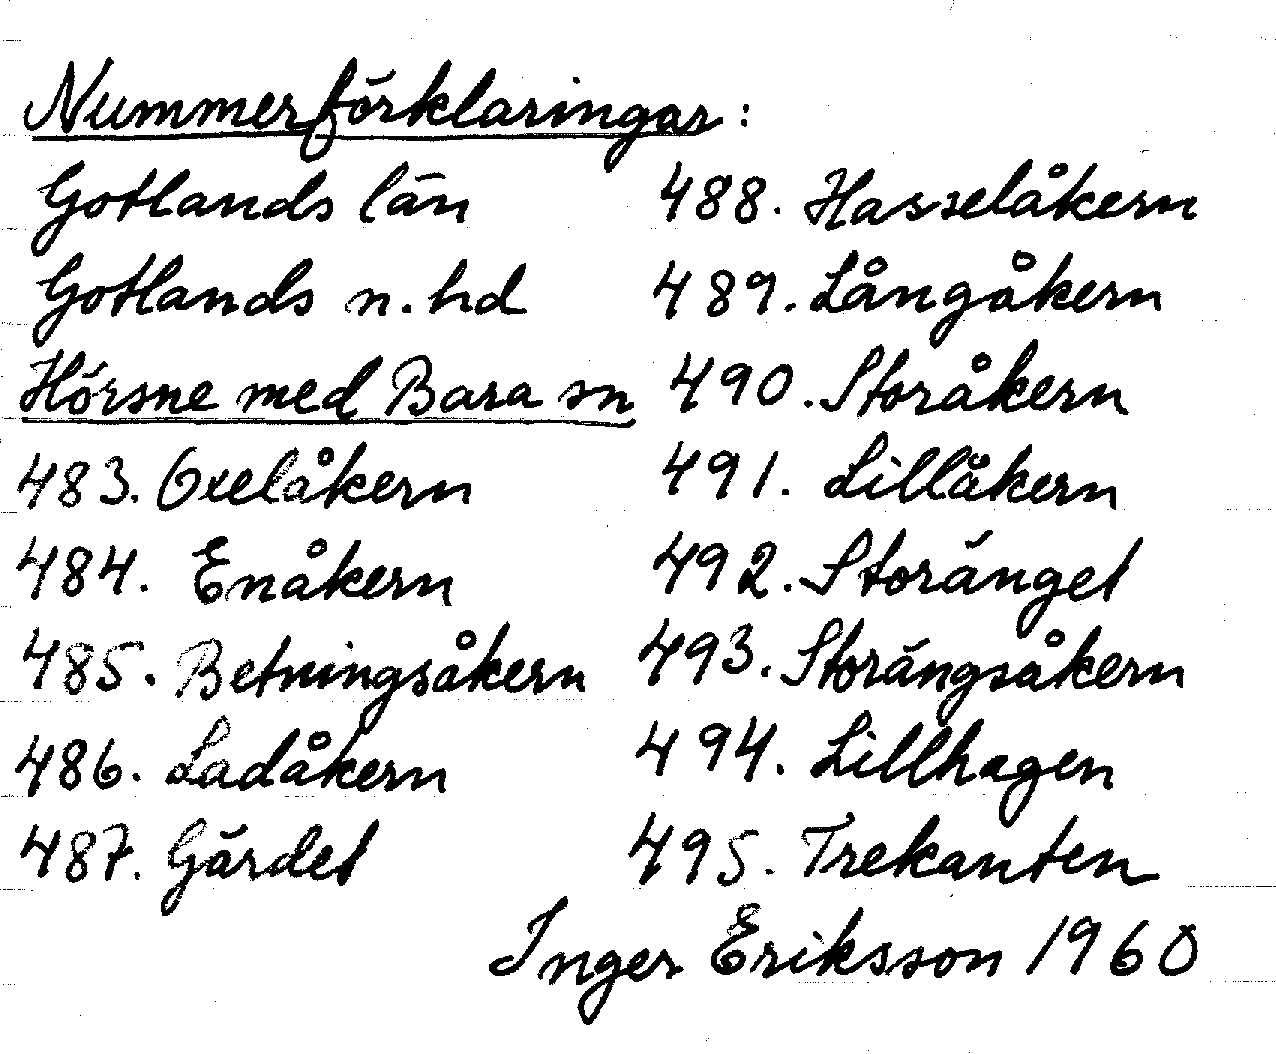 Nummerförklaringar:
Gotlands län
Gotlands n. hd
Hörsne med Bara sn
483. Oxelåkern
484. Enåkern
485. Betningsåkern
486. Ladåkern
487. Gärdet
488. Hasselåkern
489. Långåkern
490. Storåkern
491. Lillåkern
492. Storänget
493. Storängsåkern
494. Lillhagen
495. Trekanten
Inger Eriksson 1960